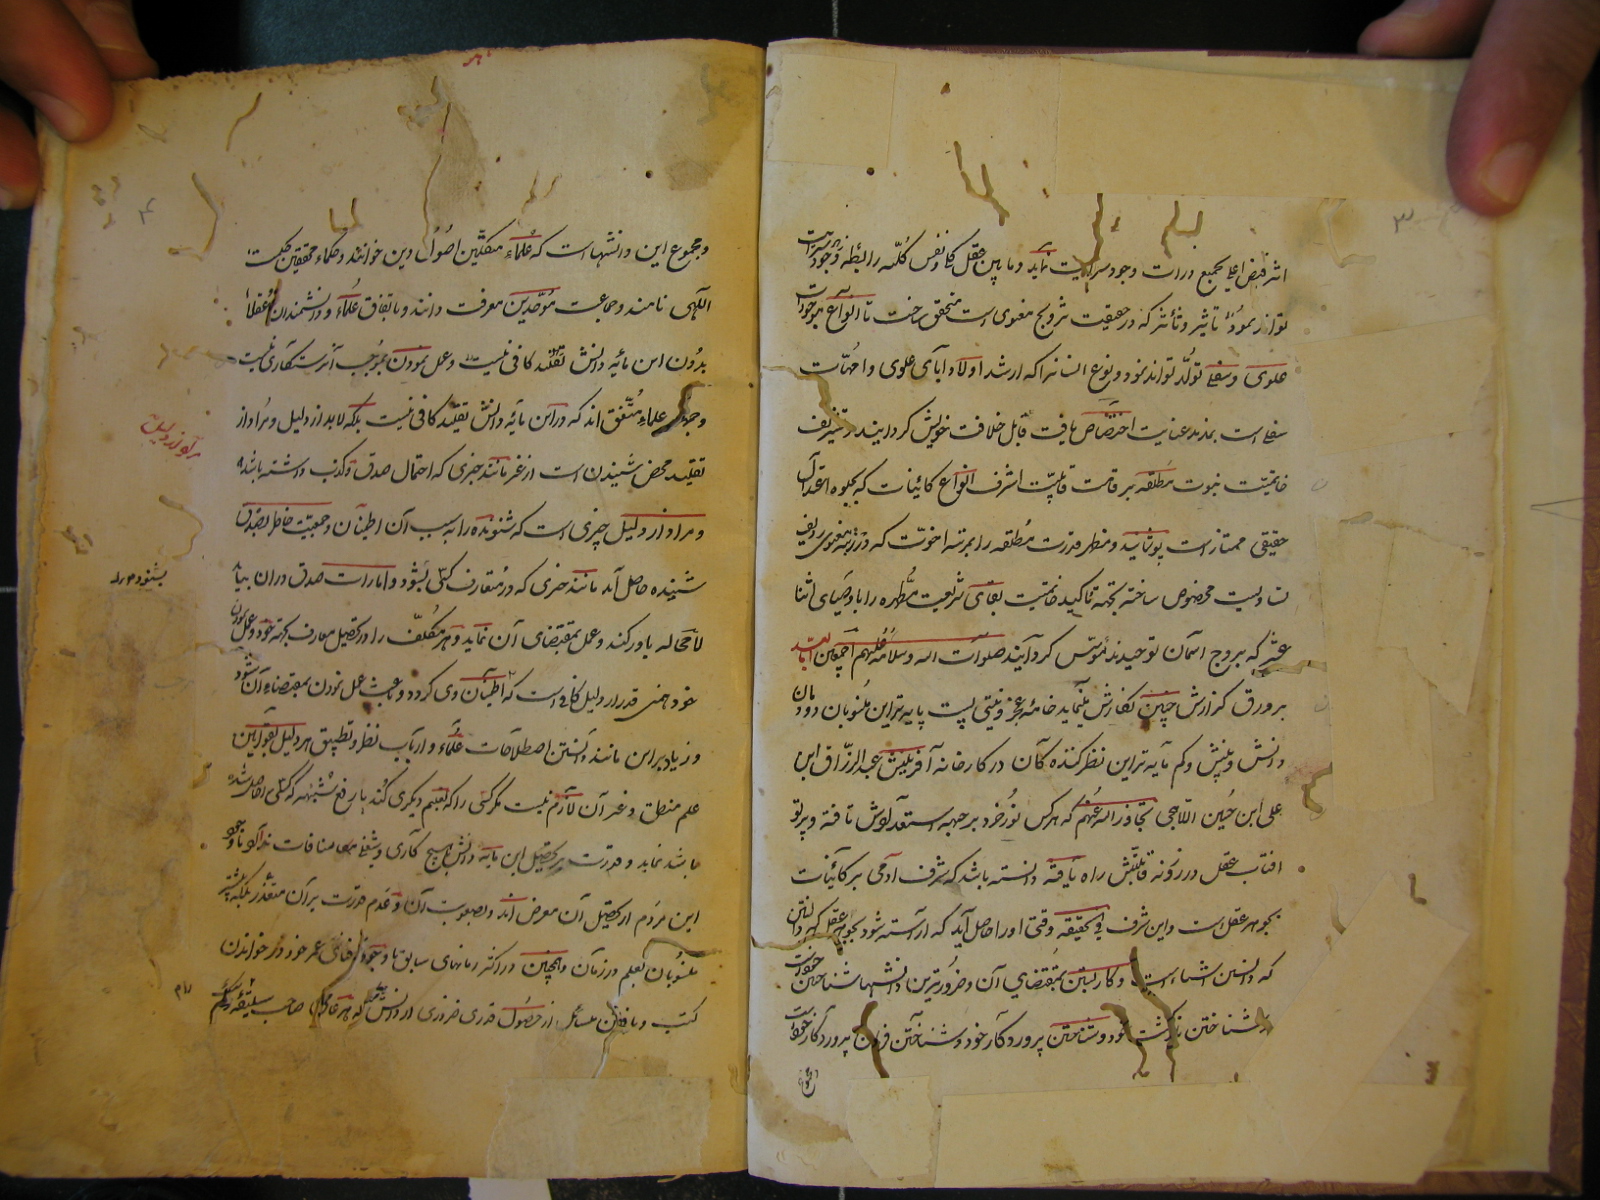 اثر فیض اعلی بجمیع ذرات وجود سرایت نماید و مابین عقل کل و نفس کلیه رابطه
تواند نمود تاثیر و تأثر که در حقیقت تزویج معنوی است متحقق ساخت تا انواع موجودات
علوی و سفلی تولّد تواند نمود و نوع انسانرا که ارشد اولاد آبای علوی و امّهات
سفلی است بمزید عنایت اختصاص یافت قابل خلافت خویش گردانید و تشریف
خاتمیّت نبوت مطلقه بر قامت قابلیّت اشرف انواع کائنات که بجلوه اعتدال
حقیقی ممتاز است پوشانید و مظهر قدرت مطلقه را بمرتبه اخوّت که در رتبه معنوی ردیف
نسا ولیت مخصوص ساخته بجهة تاکید خاتمیت بقای شریعت مطهّره را باوصیای اثنا
عشر که بروج آسمان توحیدند مؤسّس گردانید صلوات الله و سلامه علیهم اجمعین اما بعد
بر ورق گزارش چنین نگارش مینماید خامه عجز و نیستی پست پایه‌ترین منسوبان دودمان
دانش و بینش و کم مایه‌ترین نظرکننده گان در کارخانه آفرینش عبد الرزّاق ابن
علی ابن حُسین اللّاهجی تجاوز الله عنهم که هرکس نُور خرد بر جبهه استعدادش تافته و پرتو
افتاب عقل در روزنه قابلیّتش راه یافته دانسته باشد که شرف آدمی بر کائنات
بجوهر عقل است و این شرف فی الحقیقه وقتی او را حاصل آید که آراسته شود بجوهر عقل که دانستن
که دانستن اشیاء است و کار بستن بمقتضای آن و ضرورترین دانشها شناختن خود است
و شناختن بازگشت خود و شناختن پروردکار خود و شناختن فرمان پروردکار خود است
و مجموع این دانشهاست که علماء متقنین اصُول دین خوانند و حکماء محققین حکمت
الٓهی نامند و جماعت مُوحّدین معرفت دانند و باتفاق علماء و دانشمندان و عقلا
بدُون این مایه دانش تقلید کافی نیست و عمل نمودن بموجب آن رستگاری نیست
و جمهور علماء متّفق‌اند که در این مایه دانش تقلید کافی نیست بلکه لابد از دلیل و مُراد از
تقلید محض شنیدن است از غیر مانند خبری که احتمال صدق و کذب داشته باشد
و مراد از دلیل چیزی است که شنونده را بسبب آن اطمینان و جمعیت خاطر بصدق
شنیده حاصل آید مانند خبری که در متعارف کسی بشنود و امارات صدق در ان بیابد
لامحاله باور کند و عمل بمقتضای آن نماید و هر مکلّف را در تحصیل معارف بجهة خود و عمل نمودن
خود همین قدر از دلیل کافی است که اطمینان وی گردد و باعث عمل نمودن بمقتضاء آن شود
و زیاد بر این مانند دانستن اصطلاحات علماء و ارباب نظر و تطبیق هر دلیل بقوانین
علم منطق و غیر آن لازم نیست مگر کسی را که تعلیم دیگری کند یا رفع شبهه که کسی را حاصل شده
باشد نماید و قدرت بر تحصیل این مایه دانش با هیچ کاری و شغلی مطلقا منافات ندارد و با وجود
این مردم از تحصیل آن معرض‌اند و بصعوبت آن و عدم قدرت بر آن متعذر بلکه بیشتر
منسوبان بعلم در زمان و همچنین در اکثر زمانهای سابق با وجود افنای عمر خود در خواندن
کتب و یافتن مسائل از حصُول قدری ضروری از دانش که هر عاقل صاحب سلیقه
مراد از دلیل
بشنود